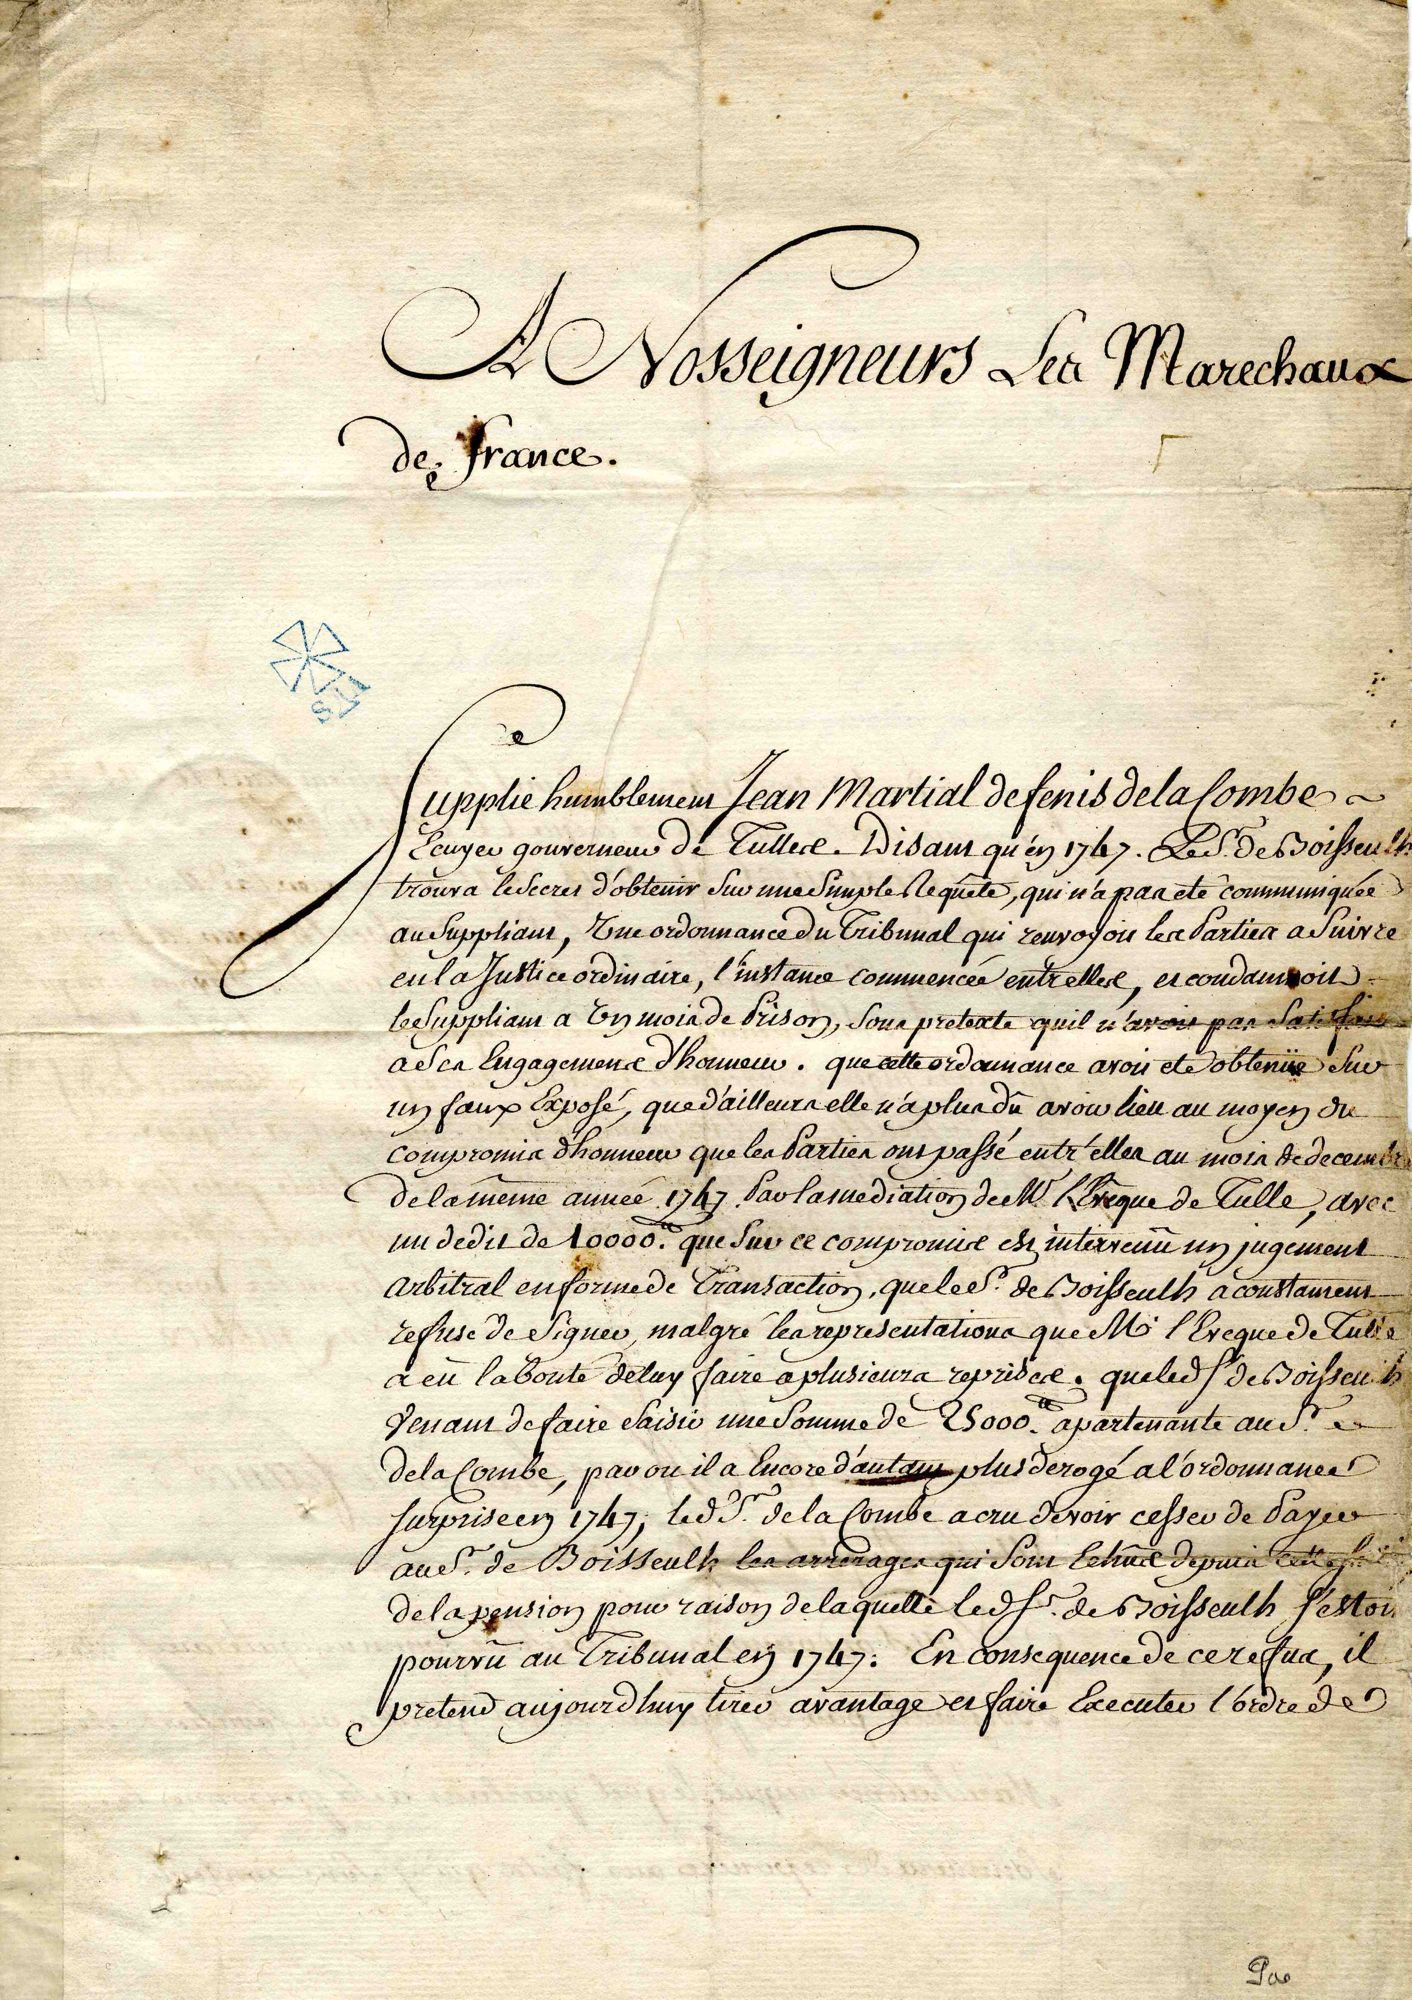 A Nosseigneurs Les Marechaux
de france.
SLI
Supplie humblement Jean Martial de fenis de la Combe
Ecuyer gouverneur de Tulle. Disant qu'en 1747. Le Sr. de Boisseulh
trouva le secret d'obtenir sur une simple Requête, qui n'a pas eté communiquée
au suppliant, Une ordonnance du Tribunal qui renvoyoit les Parties a suivre
en la Justice ordinaire, l'instance commencée entr'elles, et condamnoit
le suppliant a Un mois de Prison, sous pretexte qu'il n'avoit pas satisfait
a ses Engagements d'honneur. que cette ordonnance avoit eté obtenüe sur
un faux Exposé, que d'ailleurs elle n'a plus dû avoir lieu au moyen du
compromis d'honneur que les Parties ont passé entr'elles au mois de decembre
de la même année 1747. Par la mediation de Mr l'Evêque de Tulle, avec
un dedit de 10000.tt que sur ce compromis est intervenü un jugement
arbitral en forme de Transaction, que le Sr. de Boisseulh a constament
refusé de signer, malgré les representations que Mr l'Eveque de Tulle
a eü la bonté de luy faire a plusieurs reprises. que led Sr de Boisseulh
venant de faire saisir une somme de 25000.tt apartenante au Sr.
de la Combe, par ou il a Encore d'autant plus derogé a l'ordonnance
surprise en 1747, led Sr. de la Combe a cru devoir cesser de Payer
au Sr. de Boisseulh les arrerages qui sont echus depuis cette
de la pension pour raison de laquelle led Sr. de Boisseulh s'estoit
pourvû au Tribunal en 1747. En consequence de ce refus, il
pretend aujourd'huy tirer avantage et faire Executer l'ordre de